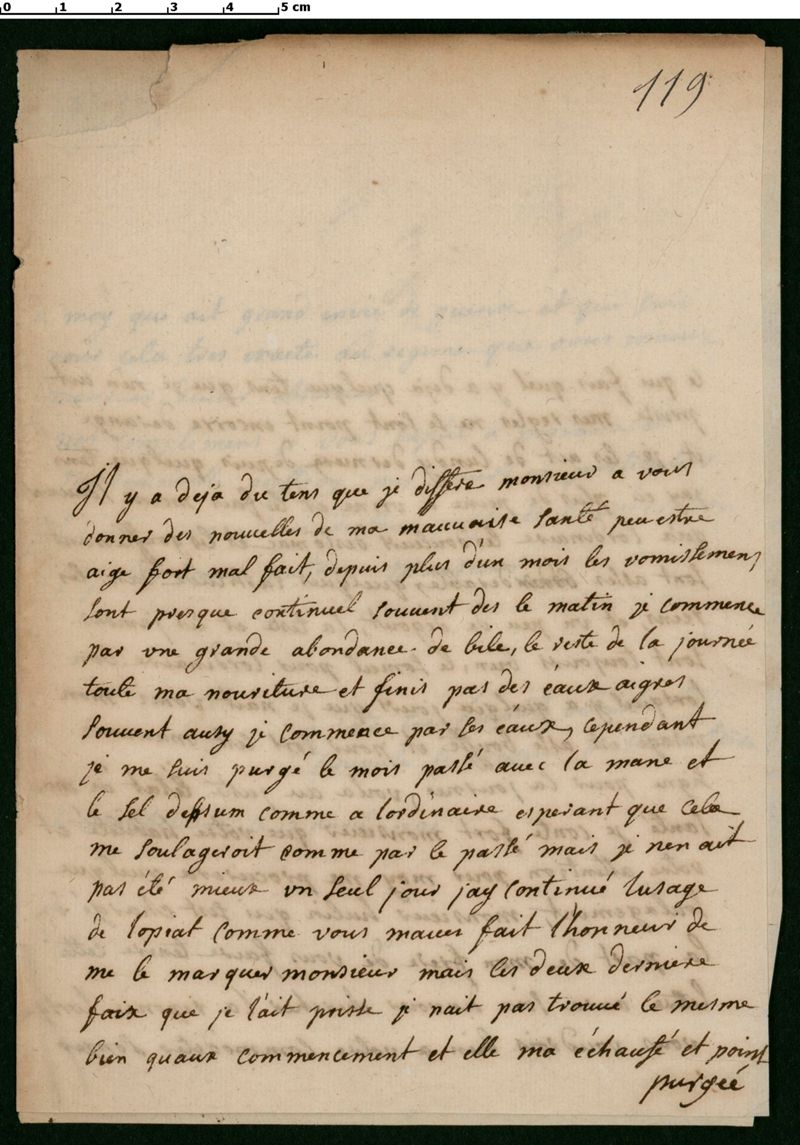 0 1 2 3 4 5 cm
119
Il y a deja du tens que je differe monsieur a vous
donner des nouvelles de ma mauvaise santé peu estre
aige fort mal fait, depuis plus d'un mois les vomissemens
sont presque continuel souvent des le matin je commence
par vne grande abondance de bile, le reste de la journée
toute ma nouriture et finis pas des éaux aigres
souvent ausy je commence par les éaux, cependant
je me suis purgé le mois passé avec la mane et
le sel depsum comme a lordinaire esperant que cela
me soulageroit comme par le passé mais je nen ait
pas été mieux vn seul jour jay continué lusage
de lopiat comme vous maues fait l'honneur de
me le marquer monsieur mais les deux derniere
faix que je l'ait prisse je nait pas trouvé le mesme
bien quaux commencement et elle ma échaufé et point
purgéé